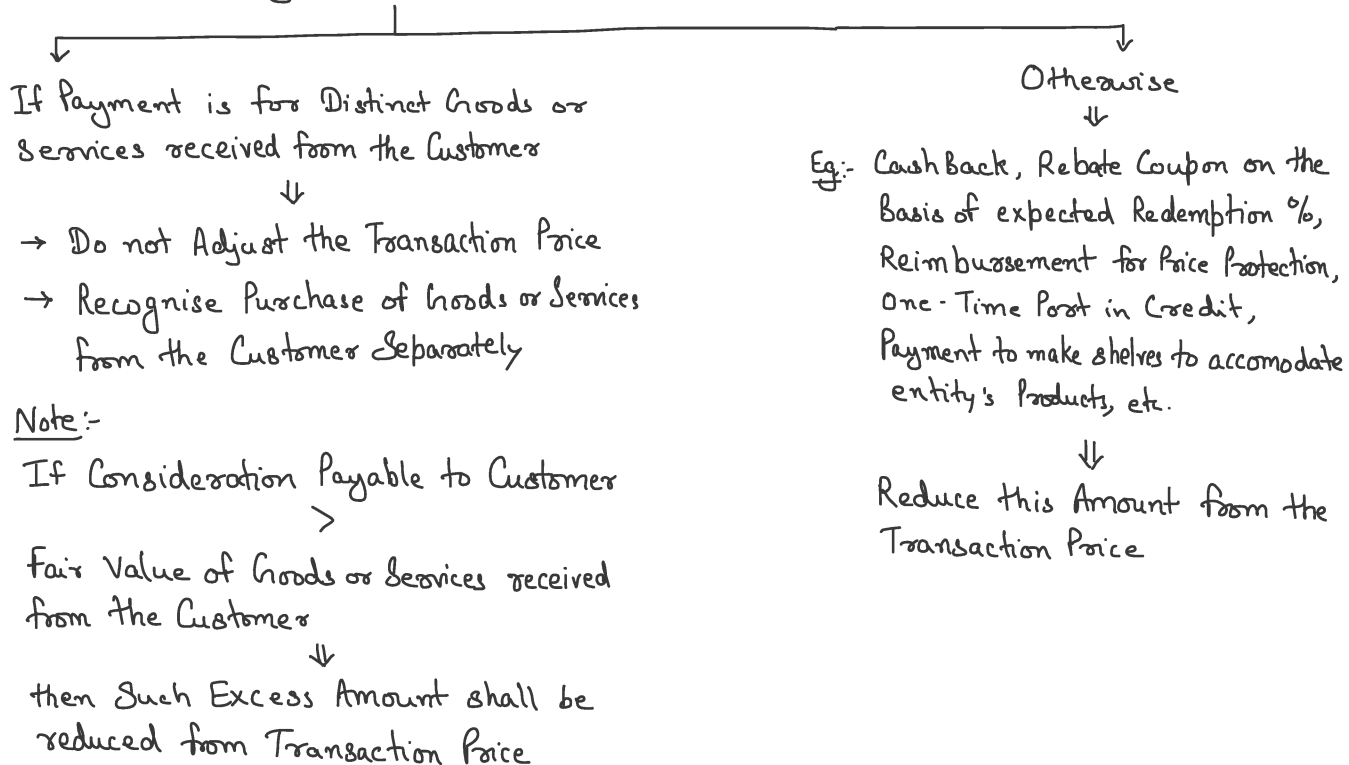 If Payment is for Distinct Goods or
Services received from the Customer
⇓
→ Do not Adjust the Transaction Price
→ Recognise Purchase of Goods or Services
from the Customer Separately
Note:-
If Consideration Payable to Customer
>
Fair Value of Goods or Services received
from the Customer
⇓
then Such Excess Amount shall be
reduced from Transaction Price
Otherwise
⇓
Eg:- Cash Back, Rebate Coupon on the
Basis of expected Redemption %,
Reimbursement for Price Protection,
One-Time Port in Credit,
Payment to make shelves to accomodate
entity's Products, etc.
⇓
Reduce this Amount from the
Transaction Price